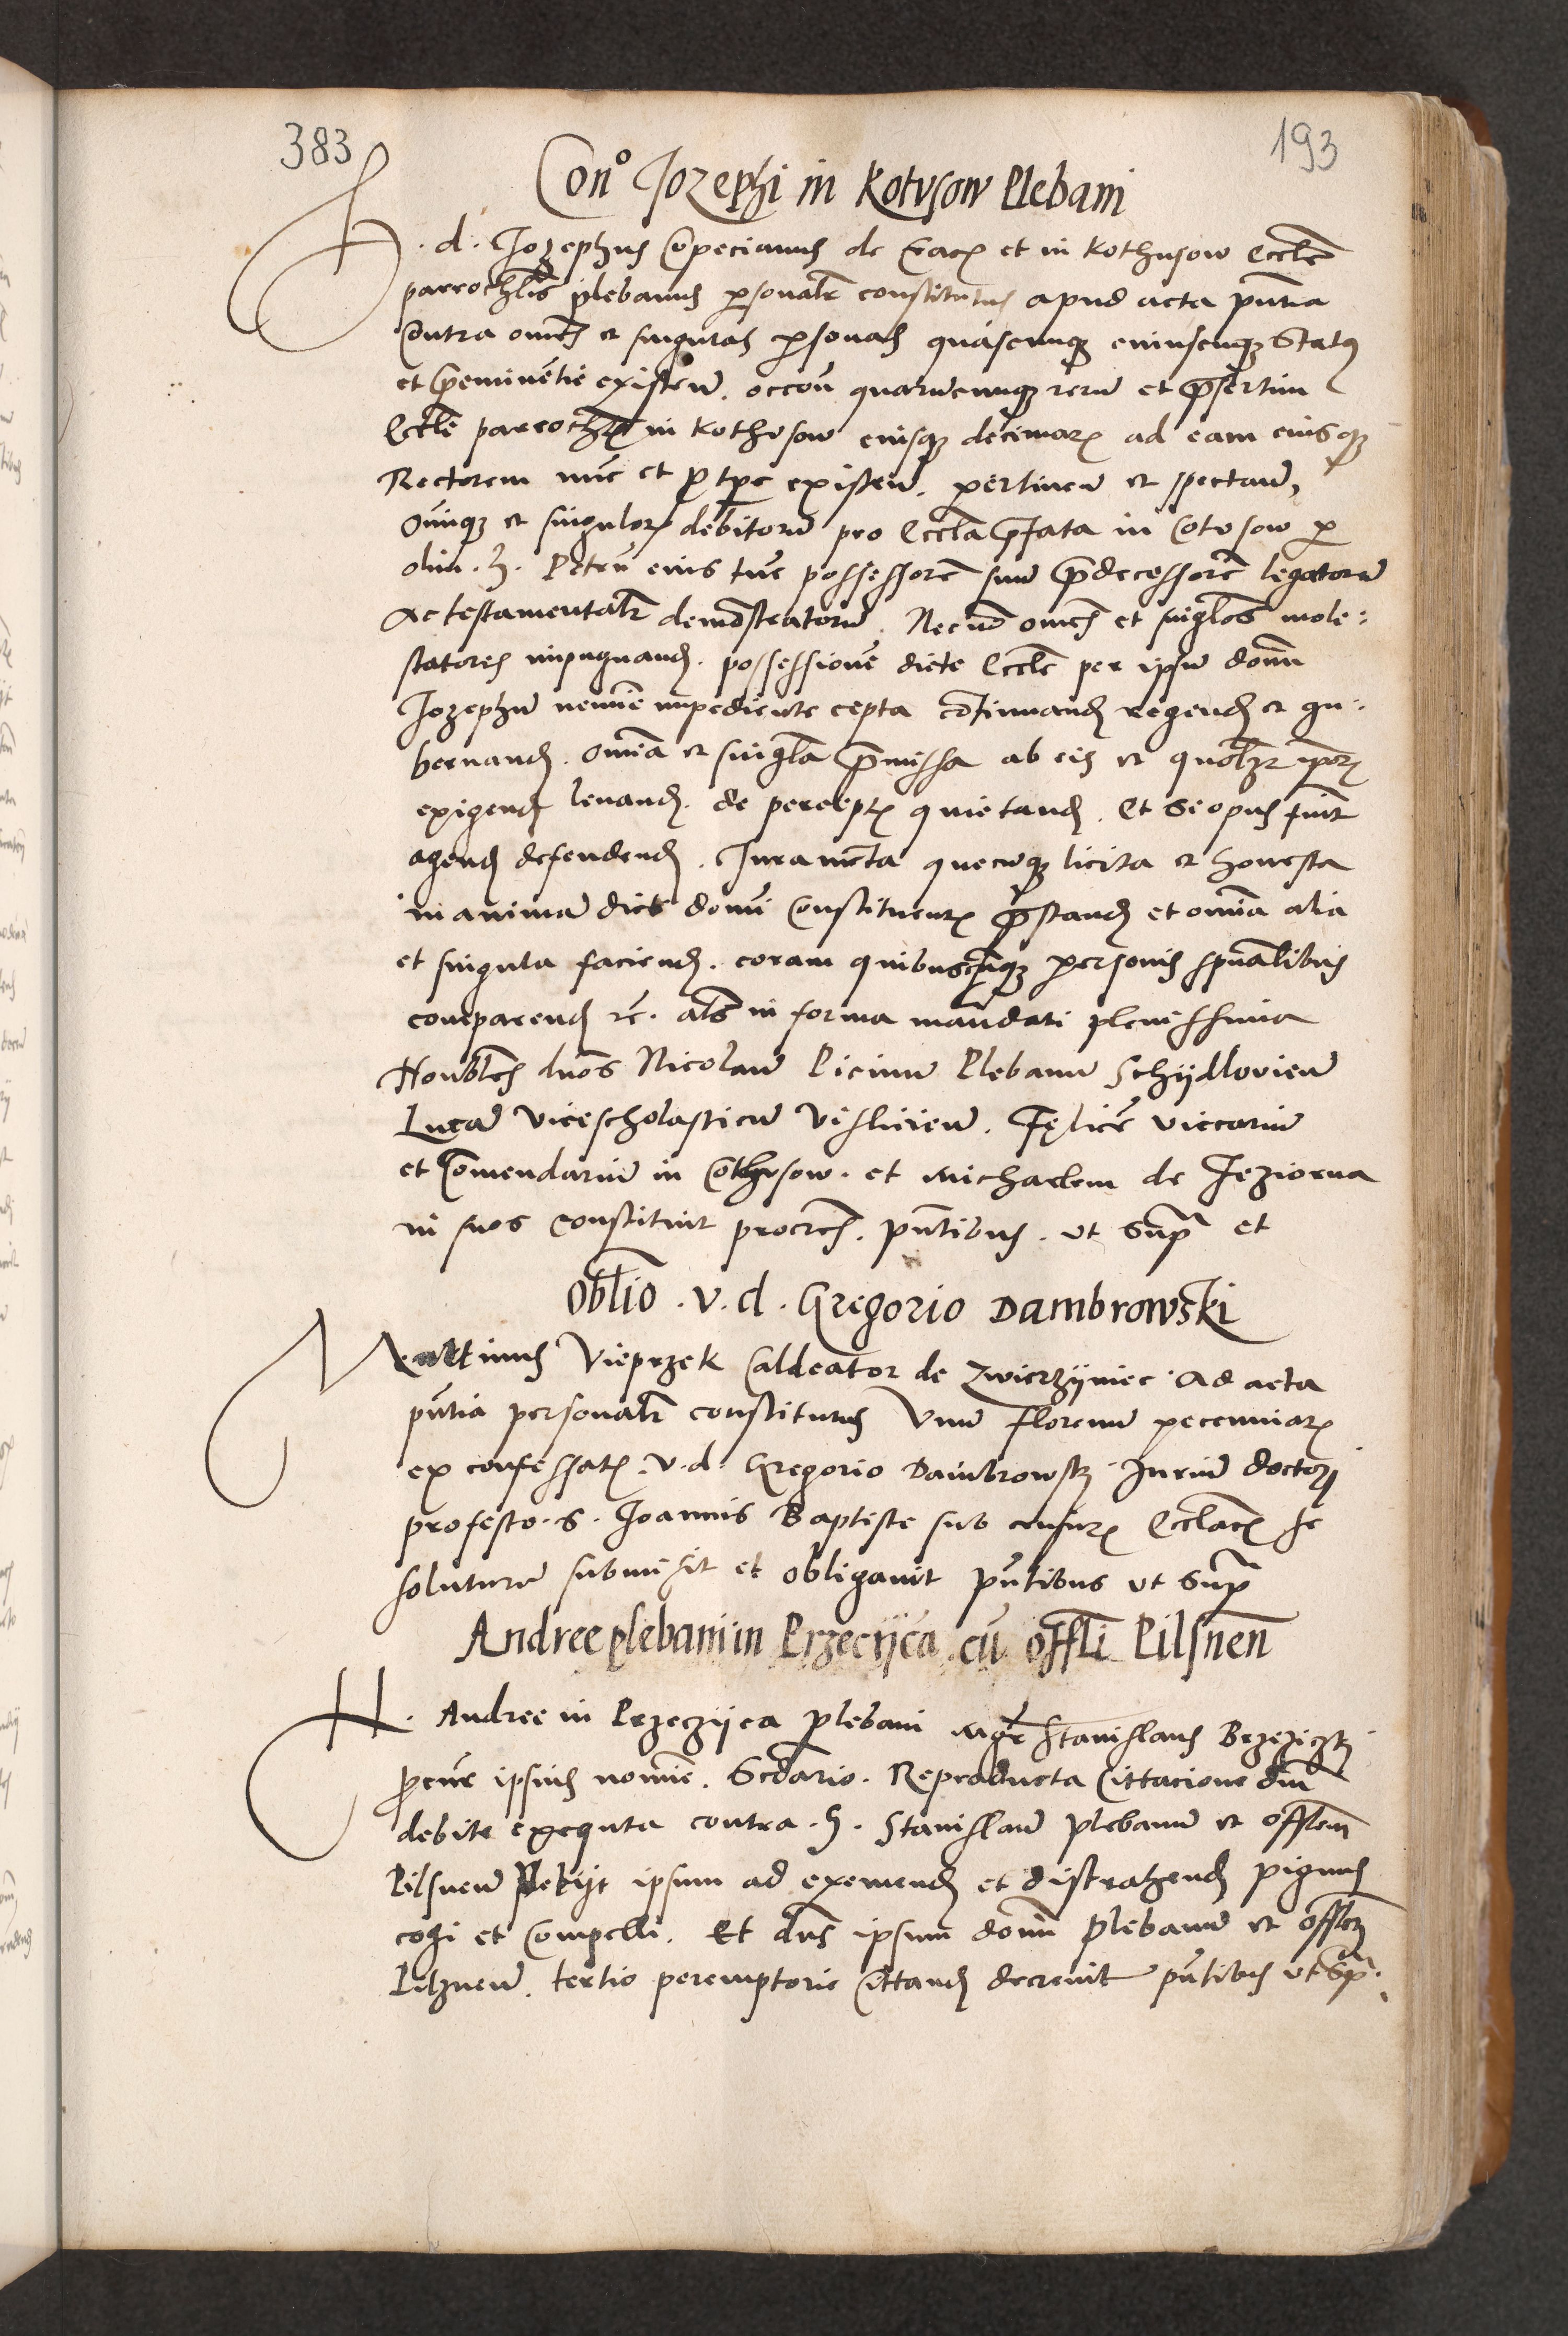 383
193
Con° Jozephi in Kotusow Plebani
H. d. Jozephus Copecianus de Crac. et in Kothusow Eccle
parrochlis plebanus personalr constitutus apud acta pntia
Contra omes et singulas personas quascunqz cuiuscunqz Status
et preminentie existen. occon quarumcunqz rerum et presertim
Eccle parroch in Kothusow eiusqz decimar. ad eam eiusqz
Rectorem nunc et p tpe existen. pertinen et spectan,
Omniqz et singulor. debitorum pro Eccla prefata in Cotusow per
olim. h. Petrum eius tunc possessorem suum predecessorem legatorum
Ac testamentalr demonstratorum. Necno omes et singlos mole:
statores impugnand. possessione dicte Eccle per ipsum domm
Jozephum nemine impediente cepta continuand regend et gu:
bernand. omnia et singla premissa ab eis et quolibet ipsor.
exigend levand. de percept. quietand. Et Si opus fuit
agend defendend. Juramenta quecunqz licita et honesta
in animam dicti domi Constituent. prestand et omnia alia
et singula faciend. coram quibuscunqz personis spualibus
comparend rc. als in forma mandati plenissima
Honbles dnos Nicolaum Picium Plebanum Schijdlovien
Lucam Vicescholasticum Vislicien. Felicem viccarium
et Comendarium in Cothusow. et Michaelem de Jeziorna
in suos constituit procres. pntibus. ut Supra et
Oblio . v. d. Gregorio Dambrowski
Martinus Vieprzek Caldeator de Zwierzijniec Ad acta
pntia personalr constitutus Unum florenum peccuniar.
ex confessat. v. d. Gregorio Dambrowski Jurium doctori
pro festo. S. Joannis Baptiste sub censur. Ecclac. se
soluturum submisit et obligavit pntibus ut Supra
Andree plebani in Przecijca cu offli Pilsnen
H. Andree in Przeczijca plebani Mgr Stanislaus Brzeziczki
procur ipsius nomie. Scdario. Reproducta Cittacione dni
debite exequta contra. h. Stanislaum plebanum et offlem
Pilsnen Petijt ipsum ad exemend et distrahend pignus
cogi et Compelli. Et dns ipsum domi plebanum et offlem
Pilznen. tertio peremptorie Cittand decrevit pntibus ut Spra.